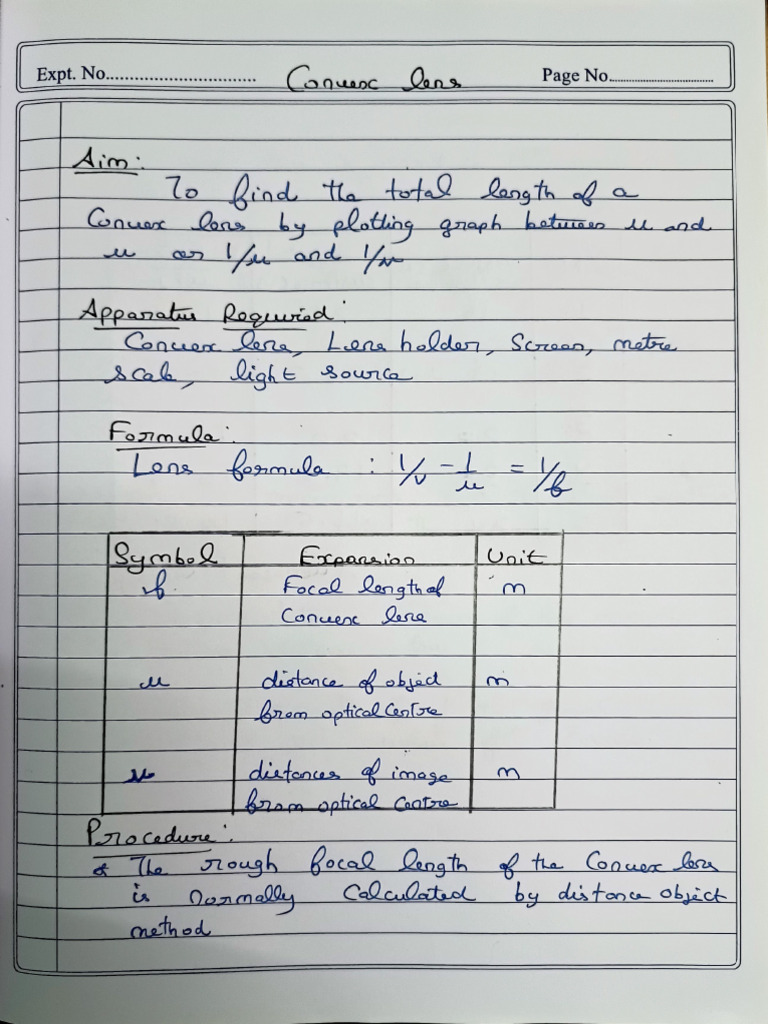 Expt. No............................... Convex lens Page No.............................
Aim:
To find the total length of a
Convex lens by plotting graph between u and
u or 1/u and 1/v
Apparatus Required:
Convex lens, Lens holder, Screen, metre
scale, light source
Formula:
Lens formula : 1/v - 1/u = 1/f
Symbol Expansion Unit
f Focal length of m
Convex lens
u distance of object m
from optical Centre
distances of image m
from optical Centre
Procedure:
* The rough focal length of the Convex lens
is normally Calculated by distance object
method